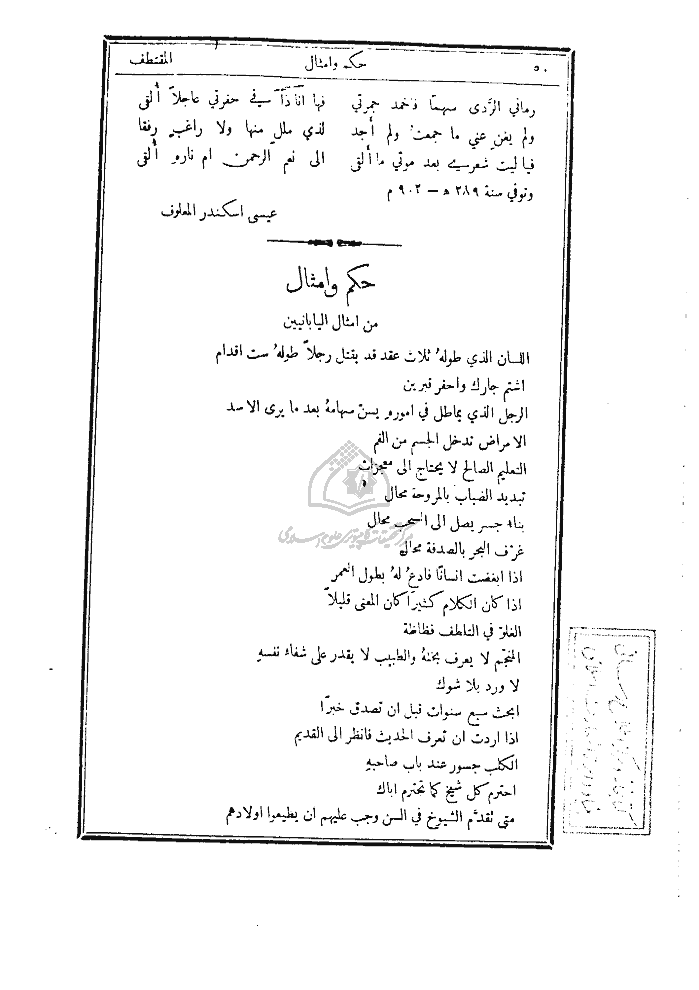 ٥٠ حكم وامثال المقتطف
رماني الرَّدى سهماً فاخمد جمرتي فها انا ذا في حفرتي عاجلاً أُلقى
ولم يغن عني ما جمعت ولم أجد لذي ملل منها ولا راغب رفقا
فيا ليت شعري بعد موتي ما ألقى الى نعم الرحمن ام نارهِ ألقى
وتوفي سنة ٢٨٩ ه — ٩٠٢ م
عيسى اسكندر المعلوف
حكم وامثال
من امثال اليابانيين
اللسان الذي طولهُ ثلاث عقد قد يقتل رجلاً طولهُ ست اقدام
اشتم جارك واحفر قبرين
الرجل الذي يماطل في امورهِ يسنّ سهامهُ بعد ما يرى الاسد
الامراض تدخل الجسم من الفم
التعليم الصالح لا يحتاج الى معجزات
تبديد الضباب بالمروحة محال
بناء جسر يصل الى السحب محال
غرف البحر بالصدفة محال
اذا ابغضت انساناً فادعُ لهُ بطول العمر
اذا كان الكلام كثيراً كان المعنى قليلاً
الغلوّ في التلطف فظاظة
المنجّم لا يعرف بختهُ والطبيب لا يقدر على شفاء نفسهِ
لا ورد بلا شوك
ابحث سبع سنوات قبل ان تصدق خبراً
اذا اردت ان تعرف الحديث فانظر الى القديم
الكلب جسور عند باب صاحبهِ
احترم كل شيخ كما تحترم اباك
متى تقدَّم الشيوخ في السن وجب عليهم ان يطيعوا اولادهم
مرکز تحقیقات کامپیوتری علوم اسلامی